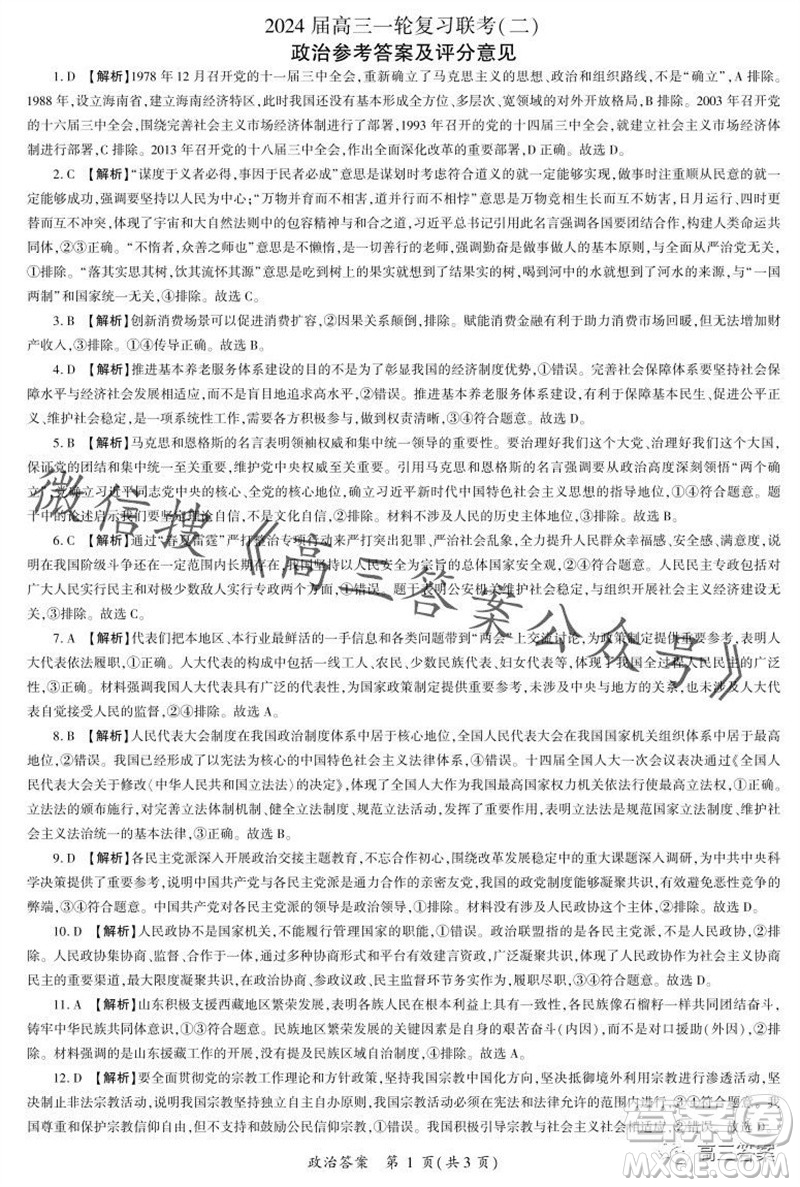 2024 届高三一轮复习联考(二)
政治参考答案及评分意见
1. D 【解析】1978 年 12 月召开党的十一届三中全会,重新确立了马克思主义的思想、政治和组织路线,不是“确立”,A 排除。
1988 年,设立海南省,建立海南经济特区,此时我国还未基本形成全方位、多层次、宽领域的对外开放格局,B 排除。2003 年召开
党的十六届三中全会,围绕完善社会主义市场经济体制进行了部署,1993 年召开的党的十四届三中全会,就建立社会主义市场经
济体制进行部署,C 排除。2013 年召开的党的十八届三中全会,作出全面深化改革的重要部署,D 正确。故选 D。
2. C 【解析】“谋度于义者必得,事因于民者必成”意思是谋划时考虑符合道义的就一定能够实现,做事时注意顺从民意的就一
定能够成功,强调要坚持以人民为中心;“万物并育而不相害,道并行而不相悖”意思是万物竞相生长而互不妨害,日月运行、四时更
替而互不冲突,体现了宇宙和大自然法则中的包容精神与和合之道,习近平总书记引用此名言强调各国要团结合作,构建人类命运共
同体,②③正确。“不惰者,众善之师也”意思是不懒惰,是一切善行的老师,强调勤奋是做事做人的基本原则,与从严治党无关,
①排除。“落其实思其树,饮其流怀其源”意思是吃到树上的果实就想到了结果实的树,喝到河中的水就想到了河水的来源,与“一国
两制”和国家统一无关,④排除。故选 C。
3. B 【解析】创新消费场景可以促进消费扩容,②因果关系颠倒,排除。赋能消费金融有利于助力消费市场回暖,但无关增加财
产收入,③排除。①④传导正确。故选 B。
4. D 【解析】推进基本养老服务体系建设的目的不是为了彰显我国的经济制度优势,①错误。完善社会保障体系要坚持社会保
障水平与经济社会发展相适应,②错误。推进基本养老服务体系建设,有利于保障基本民生、促进公平正
义,维护社会稳定,是一项系统性工作,需要做到权责清晰,③④符合题意。故选 D。
5. B 【解析】马克思和恩格斯的名言表明领袖权威和集中统一领导的重要性。要治理好我们这个大党、治理好我们这个大国,
保证党的团结和集中统一至关重要,维护党中央权威至关重要。引用马克思和恩格斯的名言强调要从政治高度深刻领悟“两个确
立”,确立习近平同志党中央的核心、全党的核心地位,确立习近平新时代中国特色社会主义思想的指导地位,①④符合题意。题
干中的论述启示我们要坚定理论自信,不是文化自信,②排除。材料不涉及人民的历史主体地位,③排除。故选 B。
6. C 【解析】通过“春夏雷霆”严打整治专项行动来严打突出犯罪、严治社会乱点,全力提升人民群众安全感、幸福感,说明
在我国阶级斗争还在一定范围内长期存在,体现了我国坚持以人民安全为宗旨的总体国家安全观,②③符合题意。人民民主专政包括对
广大人民实行民主和对极少数敌人实行专政两个方面,①错误。题干表明公安机关维护社会稳定,与组织开展社会主义经济建设无
关,④排除。故选 C。
7. A 【解析】代表们把本地区、本行业最鲜活的一手信息和各类问题带到“两会”上交流讨论,为政策制定提供重要参考,表明人
大代表依法履职,①正确。人大代表的构成中包括一线工人、农民、少数民族代表、妇女代表等,体现了我国全过程人民民主的广泛
性,③正确。材料强调我国人大代表具有广泛的代表性,为国家政策制定提供重要参考,未涉及中央与地方的关系,未涉及人大代
表自觉接受人民的监督,②④排除。故选 A。
8. B 【解析】人民代表大会制度在我国政治制度体系中居于核心地位,全国人民代表大会在我国国家机关组织体系中居于最高
地位,②排除。我国已经形成了以宪法为核心的中国特色社会主义法律体系。十四届全国人大一次会议表决通过《全国人
民代表大会关于修改〈中华人民共和国立法法〉的决定》,体现了加强重点领域、新兴领域立法,④排除。立法法是规范立法活动的法律,
立法法的颁布施行,对规范立法体制机制、健全立法制度、规范立法活动,①正确。表明立法法是规范国家立法制度、维护社
会主义法治统一的基本法律,③正确。故选 B。
9. D 【解析】各民主党派深入开展政治交接主题教育,不忘合作初心,围绕改革发展稳定中的重大课题深入调研,为中共中央科
学决策提供了重要参考,说明中国共产党与各民主党派是通力合作的亲密友党,我国的政党制度能够凝聚共识,有效避免恶性竞争的
弊端,③④符合题意。中国共产党对各民主党派的领导是政治领导,①排除。材料没有涉及人民政协这个机构,②排除。故选 D。
10. D 【解析】人民政协不是国家机关,不能履行管理国家的职能,①错误。政治联盟的组织形式是爱国统一战线,②错
误。人民政协集协商、监督、参与、合作于一体,通过多种协商形式和平台有效建言资政,广泛凝聚共识,体现了人民政协在社会主义协商
民主中的重要作用,表明人民政协是最大限度凝聚共识,积极参政议政、履职尽责,③④符合题意。故选 D。
11. A 【解析】山东积极支援西藏地区繁荣发展,体现了我国坚持各民族共同繁荣,有利于各民族像石榴籽一样共同团结奋斗,
铸牢中华民族共同体意识,①②符合题意。民族地区繁荣发展的关键因素是自身的艰苦奋斗(内因),而不是对口援助(外因),③
排除。材料强调的是山东援藏工作,未涉及民族区域自治制度,④排除。故选 A。
12. D 【解析】要全面贯彻党的宗教工作理论和方针政策,坚持我国宗教中国化方向,坚决抵御境外利用宗教进行渗透活动,坚
决制止非法宗教活动,①错误。我国宗教坚持独立自主自办原则,要引导信教群众在宪法和法律允许的范围内开展宗教活动,②错误。我
国尊重和保护宗教信仰自由,但不支持和鼓励发展宗教信仰,
政治答案 第 1 页(共 3 页)
微信搜《高三答案公众号》
高三答案
MXQE.COM